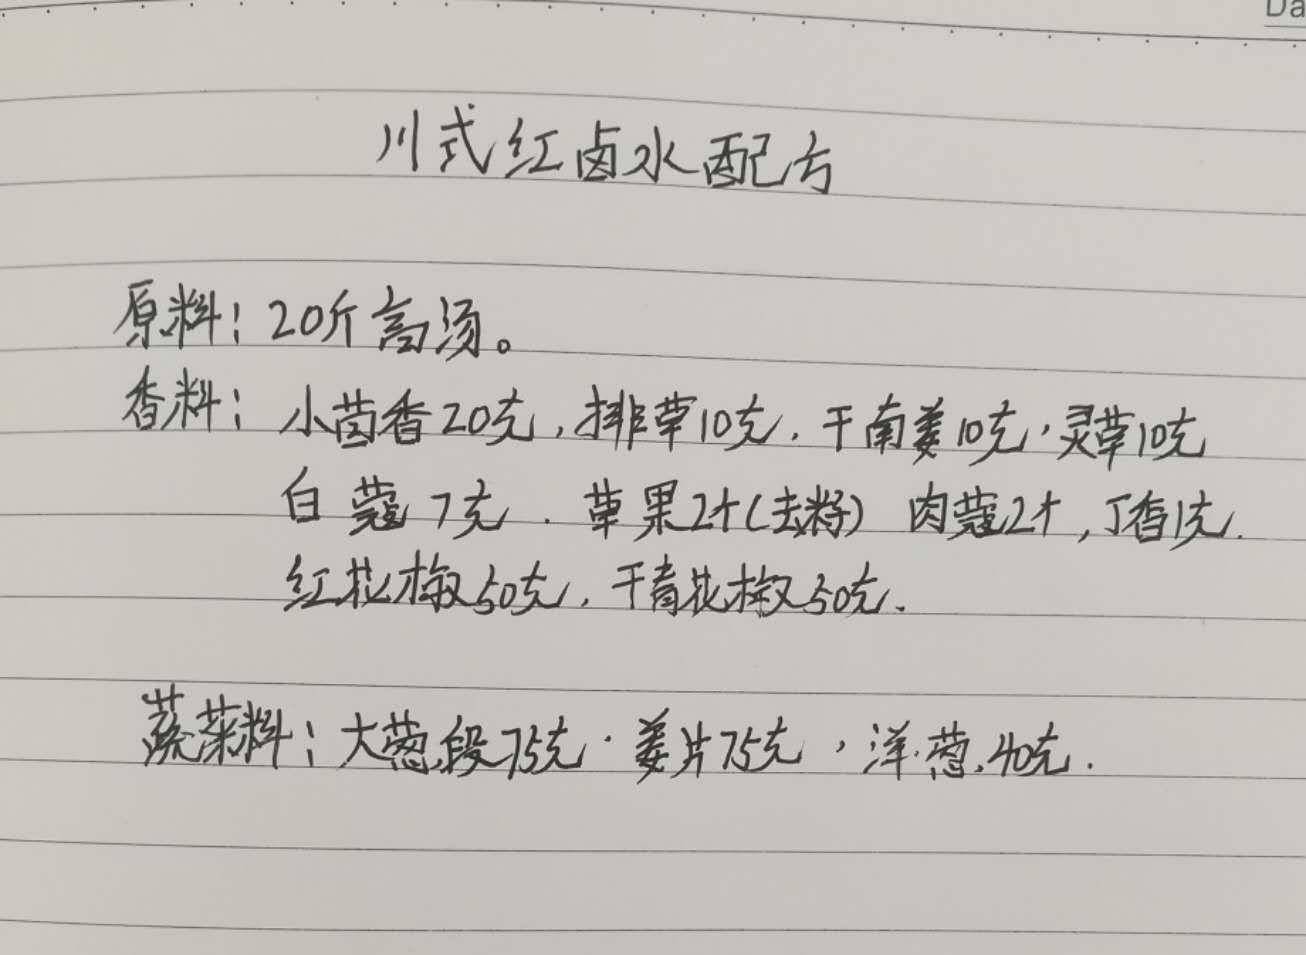 Da
川式红卤水配方
原料：20斤高汤。
香料：小茴香20克，排草10克，干南姜10克，灵草10克
白蔻7克．草果2个(去籽) 肉蔻2个，丁香1克．
红花椒50克，干青花椒50克．
蔬菜料：大葱段75克·姜片75克，洋葱40克．